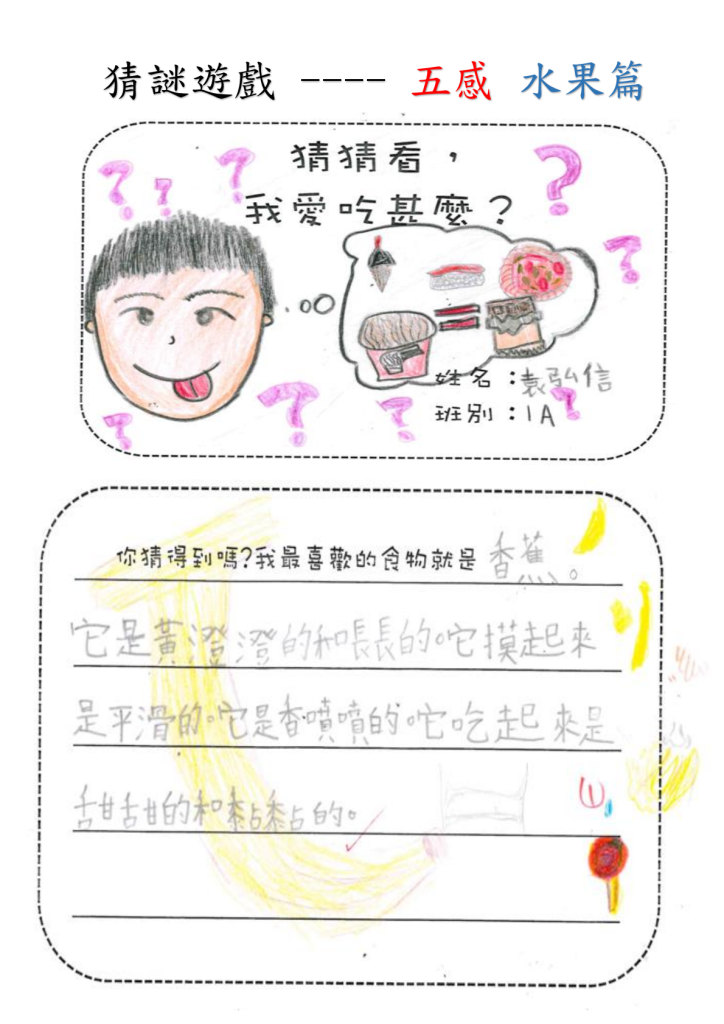 猜謎遊戲 ---- 五感 水果篇
猜猜看，
我愛吃甚麼？
姓名：袁弘信
班別：1A
你猜得到嗎?我最喜歡的食物就是 香蕉。
它是黃澄澄的和長長的。它摸起來
是平滑的。它是香噴噴的。它吃起來是
甜甜的和黏黏的。